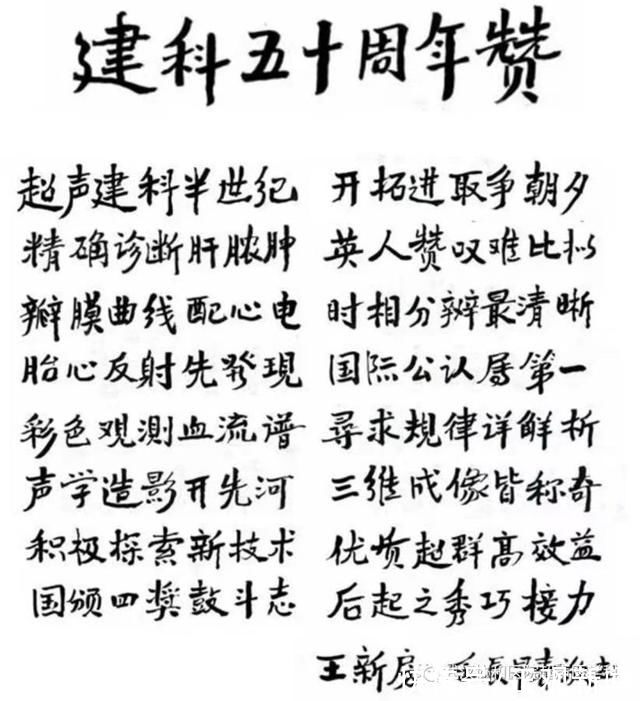 建科五十周年赞
超声建科半世纪 开拓进取争朝夕
精确诊断肝脓肿 英人赞叹难比拟
瓣膜曲线配心电 时相分辨最清晰
胎心反射先發現 国际公认属第一
彩色观测血流谱 尋求规律详解析
声学造影开先河 三维成像皆称奇
积极探索新技术 优质超群高效益
国颁四奖鼓斗志 后起之秀巧接力
王新房